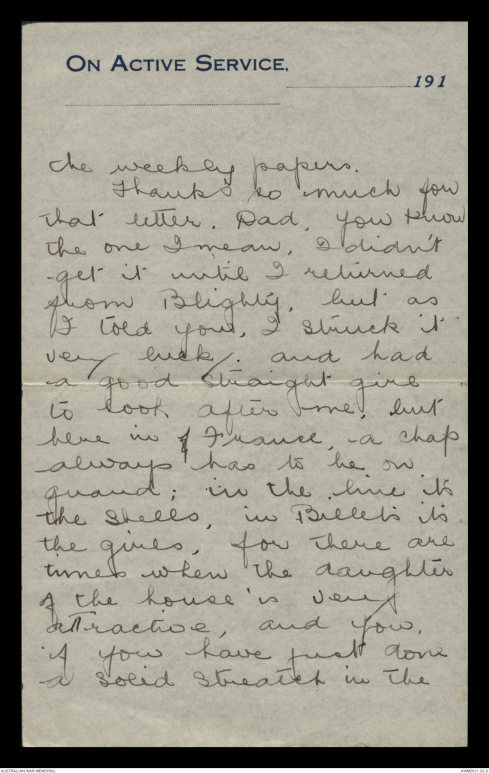 ON ACTIVE SERVICE,
191
the weekly papers.
Thanks so much for
that letter. Dad, you know
the one I mean, I didn't
get it until I returned
from Blighty, but as
I told you, I struck it
very lucky. and had
a good straight girl
to look after me, but
here in France, a chap
always has to be on
guard; in the line it's
the shells, in Billets it's
the girls, for there are
times when the daughter
of the house is very
attractive, and you,
if you have just done
a solid streatch in the
AUSTRALIAN WAR MEMORIAL